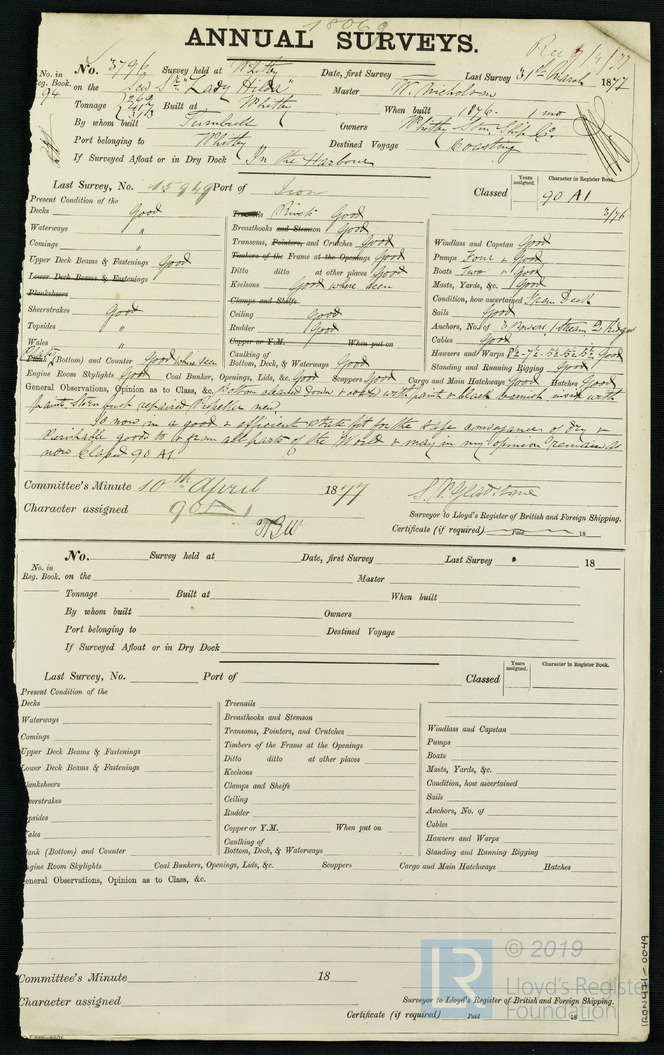 18069
ANNUAL SURVEYS.
No. 3796 Survey held at Whitby Date, first Survey Last Survey 31st March 1877
No. in Reg. Book. 94 on the Screw Str "Lady Hilda" Master W. Nicholson
Tonnage Built at Whitby When built 1876. 1 mo
By whom built Turnbull Owners Whitby Stm Ship Co.
Port belonging to Whitby Destined Voyage Coasting
If Surveyed Afloat or in Dry Dock In the Harbour
Last Survey, No. 15949 Port of Iron Classed 90 A1
Years assigned. Character in Register Book.
3/76
Present Condition of the
Decks good
Waterways "
Comings "
Upper Deck Beams & Fastenings Good
Lower Deck Beams & Fastenings
Planksheers
Sheerstrakes good
Topsides "
Wales "
Plank (Bottom) and Counter Good where seen
Treenails Rivets Good
Breasthooks and Stemson Good
Transoms, Pointers, and Crutches Good
Timbers of the Frame at the Openings Good
Ditto ditto at other places Good
Keelsons Good where seen
Clamps and Shelfs
Ceiling good
Rudder Good
Copper or Y.M. When put on
Caulking of Bottom, Deck, & Waterways Good
Windlass and Capstan Good
Pumps Four " Good
Boats Two " good
Masts, Yards, &c. Good
Condition, how ascertained From Deck
Sails Good
Anchors, No. of 3 Bowers 1 Stream 2 Kedges
Cables Good
Hawsers and Warps Good
Standing and Running Rigging Good
Engine Room Skylights Good Coal Bunkers, Openings, Lids, &c. Good Scuppers Good Cargo and Main Hatchways Good Hatches Good
General Observations, Opinion as to Class, &c. Bottom cleaned down & coated with paint & black varnish mixed with
paint, Stern bush repaired Propeller new.
Is now in a good & efficient state fit for the safe conveyance of Dry &
Perishable goods to & from all parts of the World & may in my opinion remain as
now Classed 90 A1
Committee's Minute 10th April 1877
Character assigned 90 A1
TBW
S. P. Gladstone
Surveyor to Lloyd's Register of British and Foreign Shipping.
Certificate (if required) Paid 18
No. Survey held at Date, first Survey Last Survey 18
No. in Reg. Book. on the Master
Tonnage Built at When built
By whom built Owners
Port belonging to Destined Voyage
If Surveyed Afloat or in Dry Dock
Last Survey, No. Port of Classed
Years assigned. Character in Register Book.
Present Condition of the
Decks
Waterways
Comings
Upper Deck Beams & Fastenings
Lower Deck Beams & Fastenings
lanksheers
eerstrakes
psides
ales
lank (Bottom) and Counter
Treenails
Breasthooks and Stemson
Transoms, Pointers, and Crutches
Timbers of the Frame at the Openings
Ditto ditto at other places
Keelsons
Clamps and Shelfs
Ceiling
Rudder
Copper or Y.M. When put on
Caulking of
Bottom, Deck, & Waterways
Windlass and Capstan
Pumps
Boats
Masts, Yards, &c.
Condition, how ascertained
Sails
Anchors, No. of
Cables
Hawsers and Warps
Standing and Running Rigging
ngine Room Skylights Coal Bunkers, Openings, Lids, &c. Scuppers Cargo and Main Hatchways Hatches
eneral Observations, Opinion as to Class, &c.
Committee's Minute 18
Character assigned
Surveyor to Lloyd's Register of British and Foreign Shipping.
Certificate (if required) Paid 18
LR © 2019
Lloyd's Register
Foundation
IRON471-0049